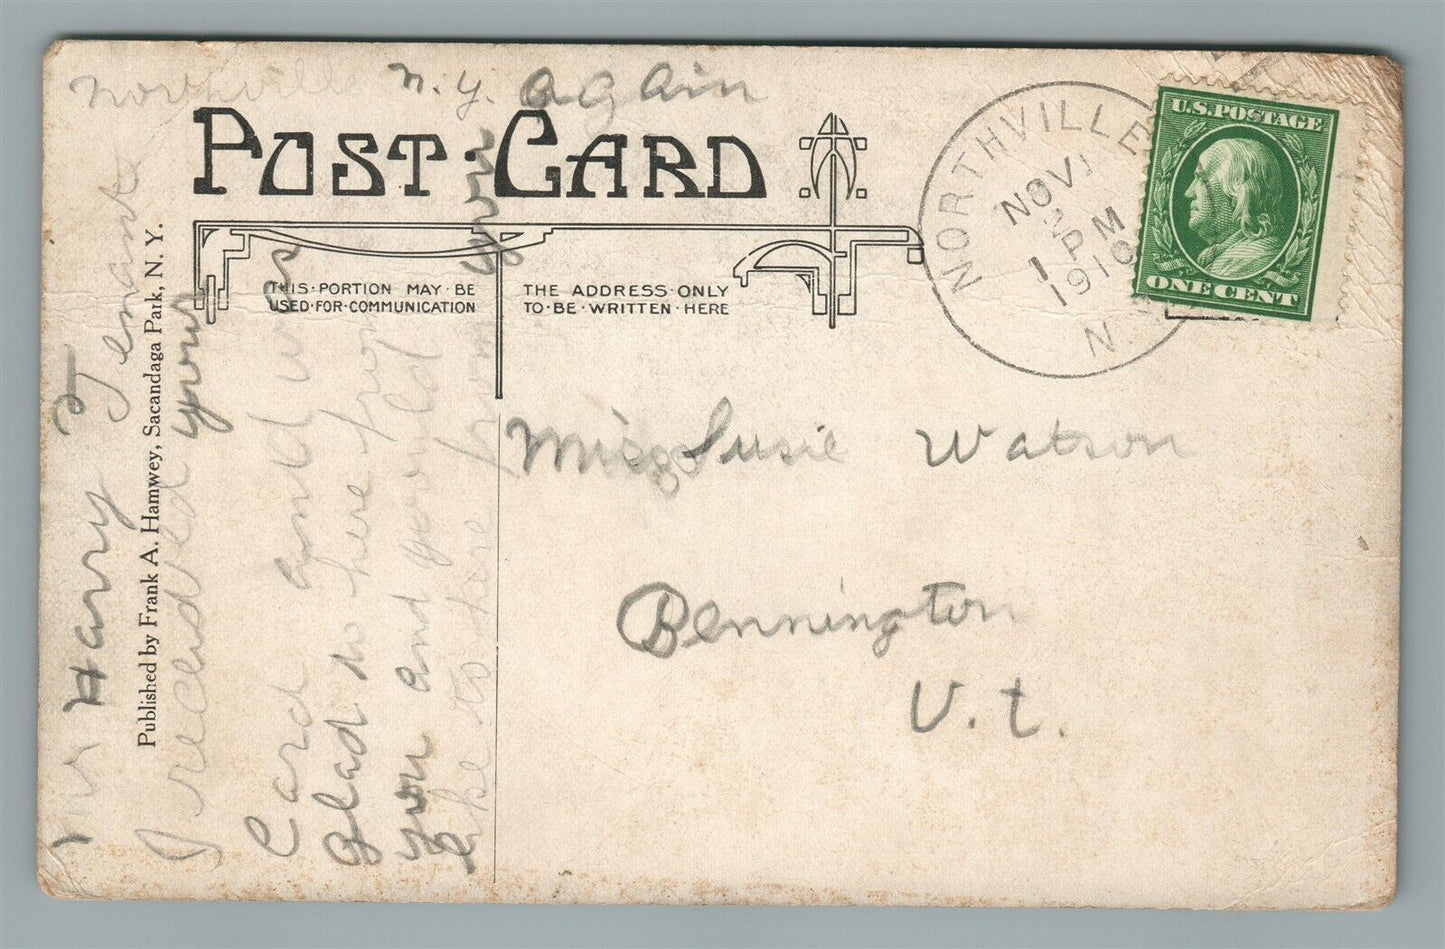 Northville N.Y. again
POST CARD
THIS·PORTION MAY·BE
USED·FOR·COMMUNICATION
THE ADDRESS·ONLY
TO·BE·WRITTEN·HERE
NORTHVILLE
NOV
1 PM
1910
N.
U.S. POSTAGE
ONE CENT
Miss Susie Watson
Bennington
V.t.
Mr Harry Tenant
Published by Frank A. Hamwey, Sacandaga Park, N. Y.
I recived your
Card and was
glad to here from
you and would
like to here from you